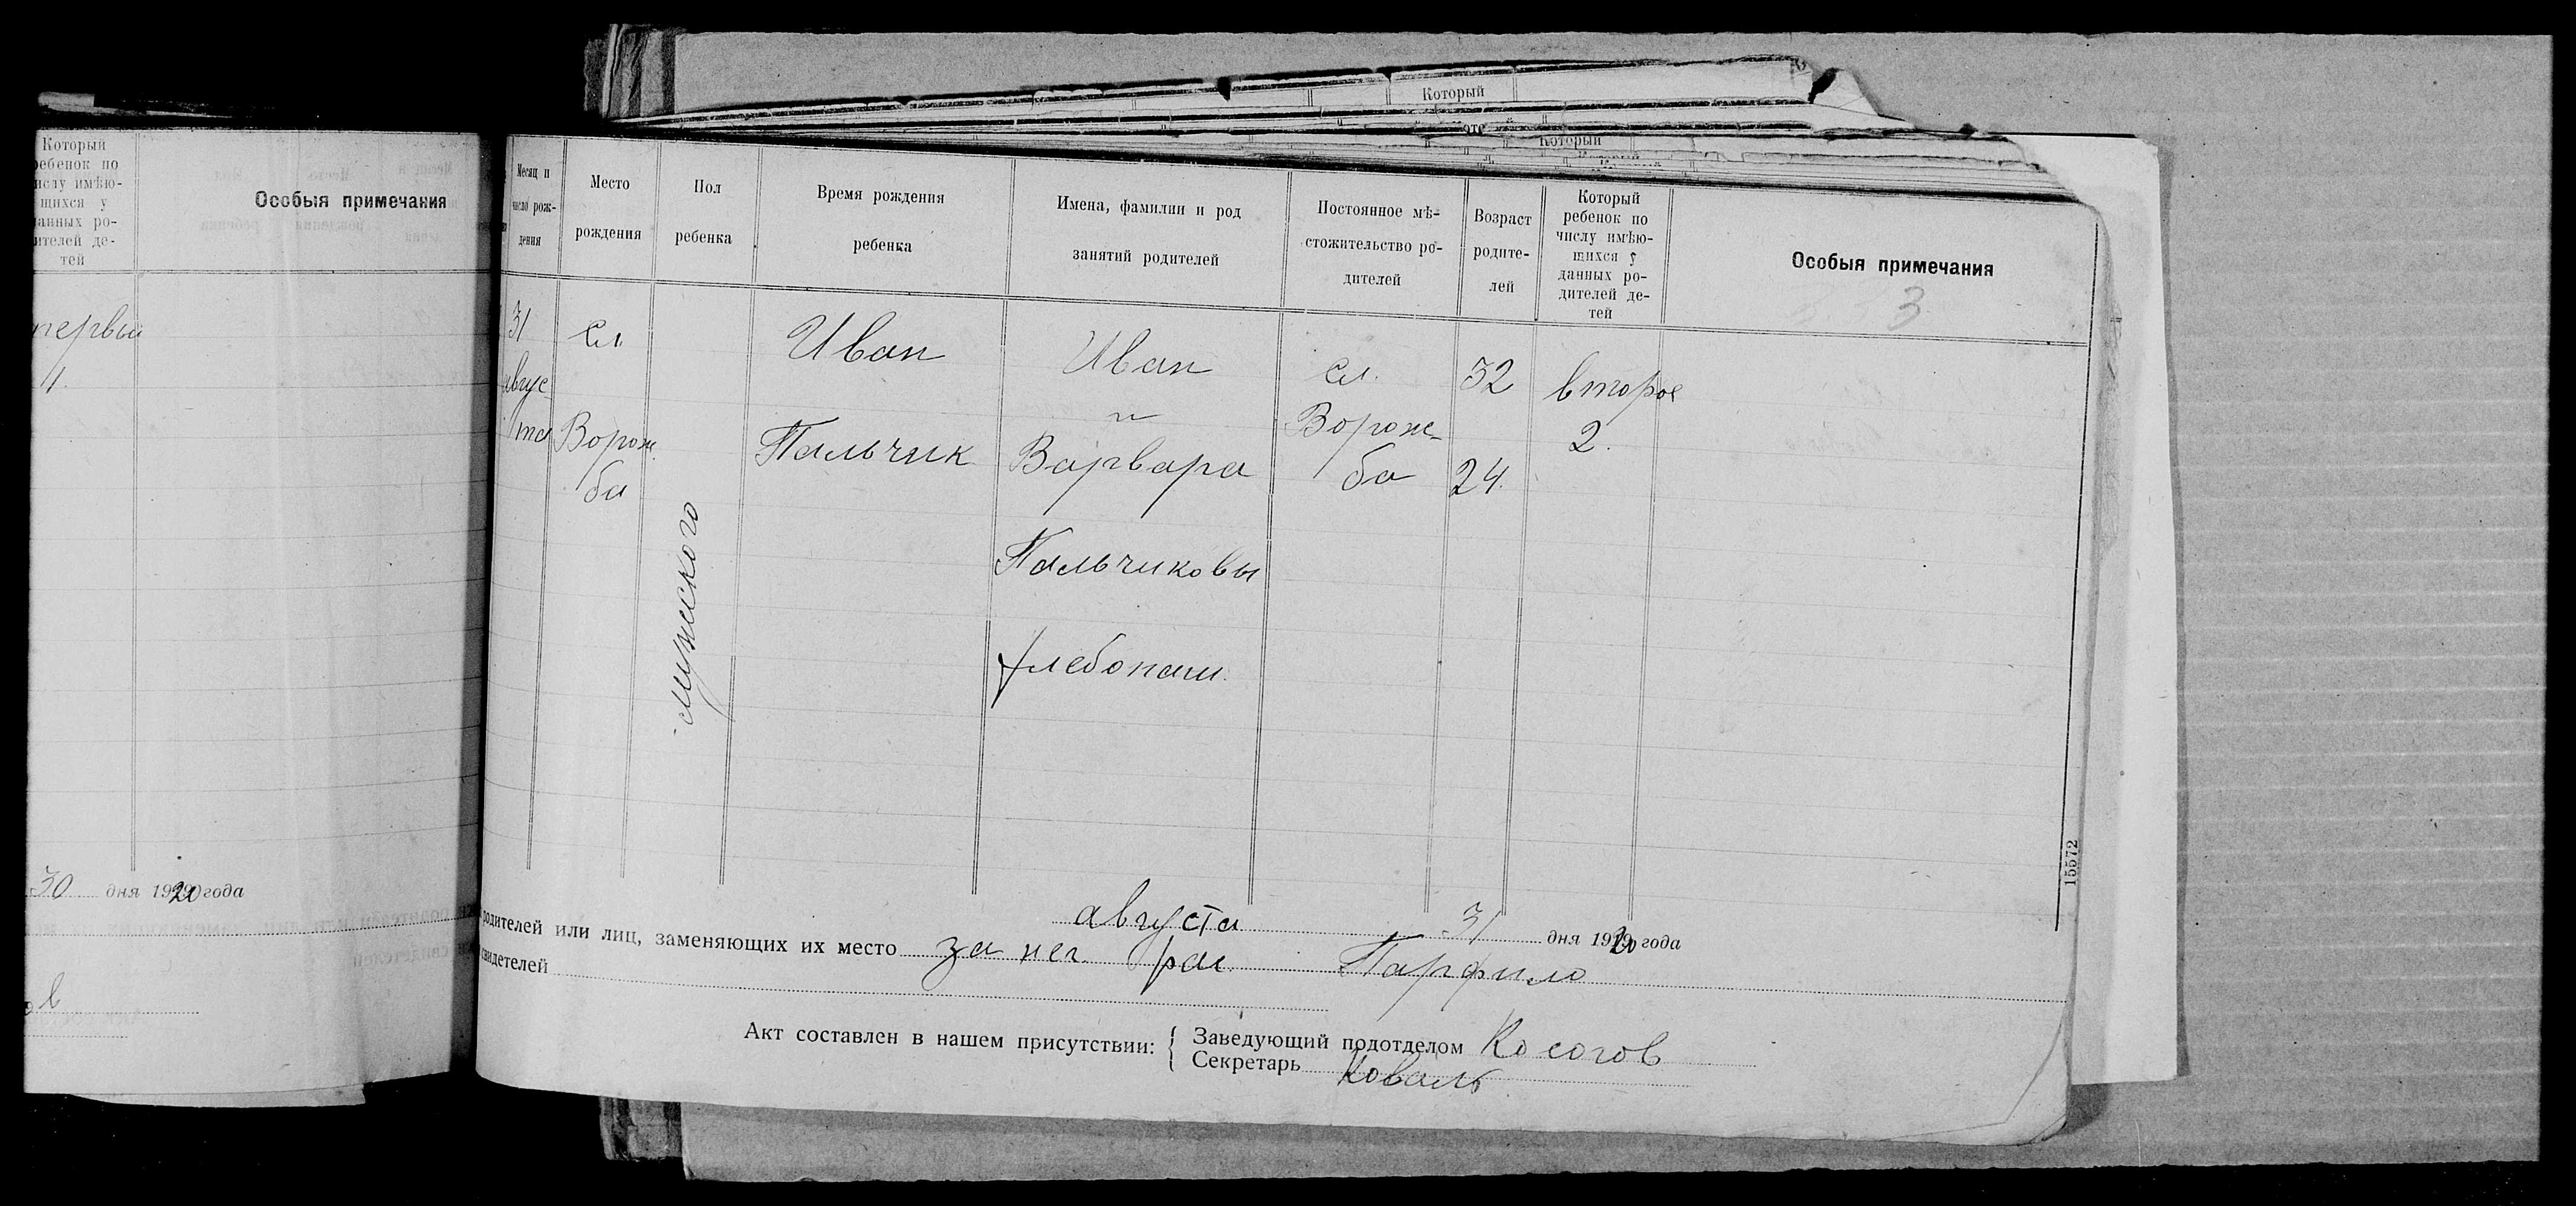 Который
Который
ребенок по
числу имѣю-
щихся у
данных ро-
дителей де-
тей
Особыя примечания
первы
1.
30 дня 1920 года
Месяц и
число рож-
дения
Место
рождения
Пол
ребенка
Время рождения
ребенка
Имена, фамилии и род
занятий родителей
Постоянное мѣ-
стожительство ро-
дителей
Возраст
родите-
лей
Который
ребенок по
числу имѣю-
щихся у
данных ро-
дителей де-
тей
Особыя примечания
3
31
авгус
та
сл
Ворож
ба
мужского
Иван
Пальчик
Иван
и
Варвара
Пальчиковы
хлебопаш.
сл.
Ворож-
ба
32
24.
второе
2.
15572
августа 31 дня 1920 года
родителей или лиц, заменяющих их место за нег. рас. Парфило
свидетелей
Акт составлен в нашем присутствии:
Заведующий подотделом Косогов
Секретарь Коваль